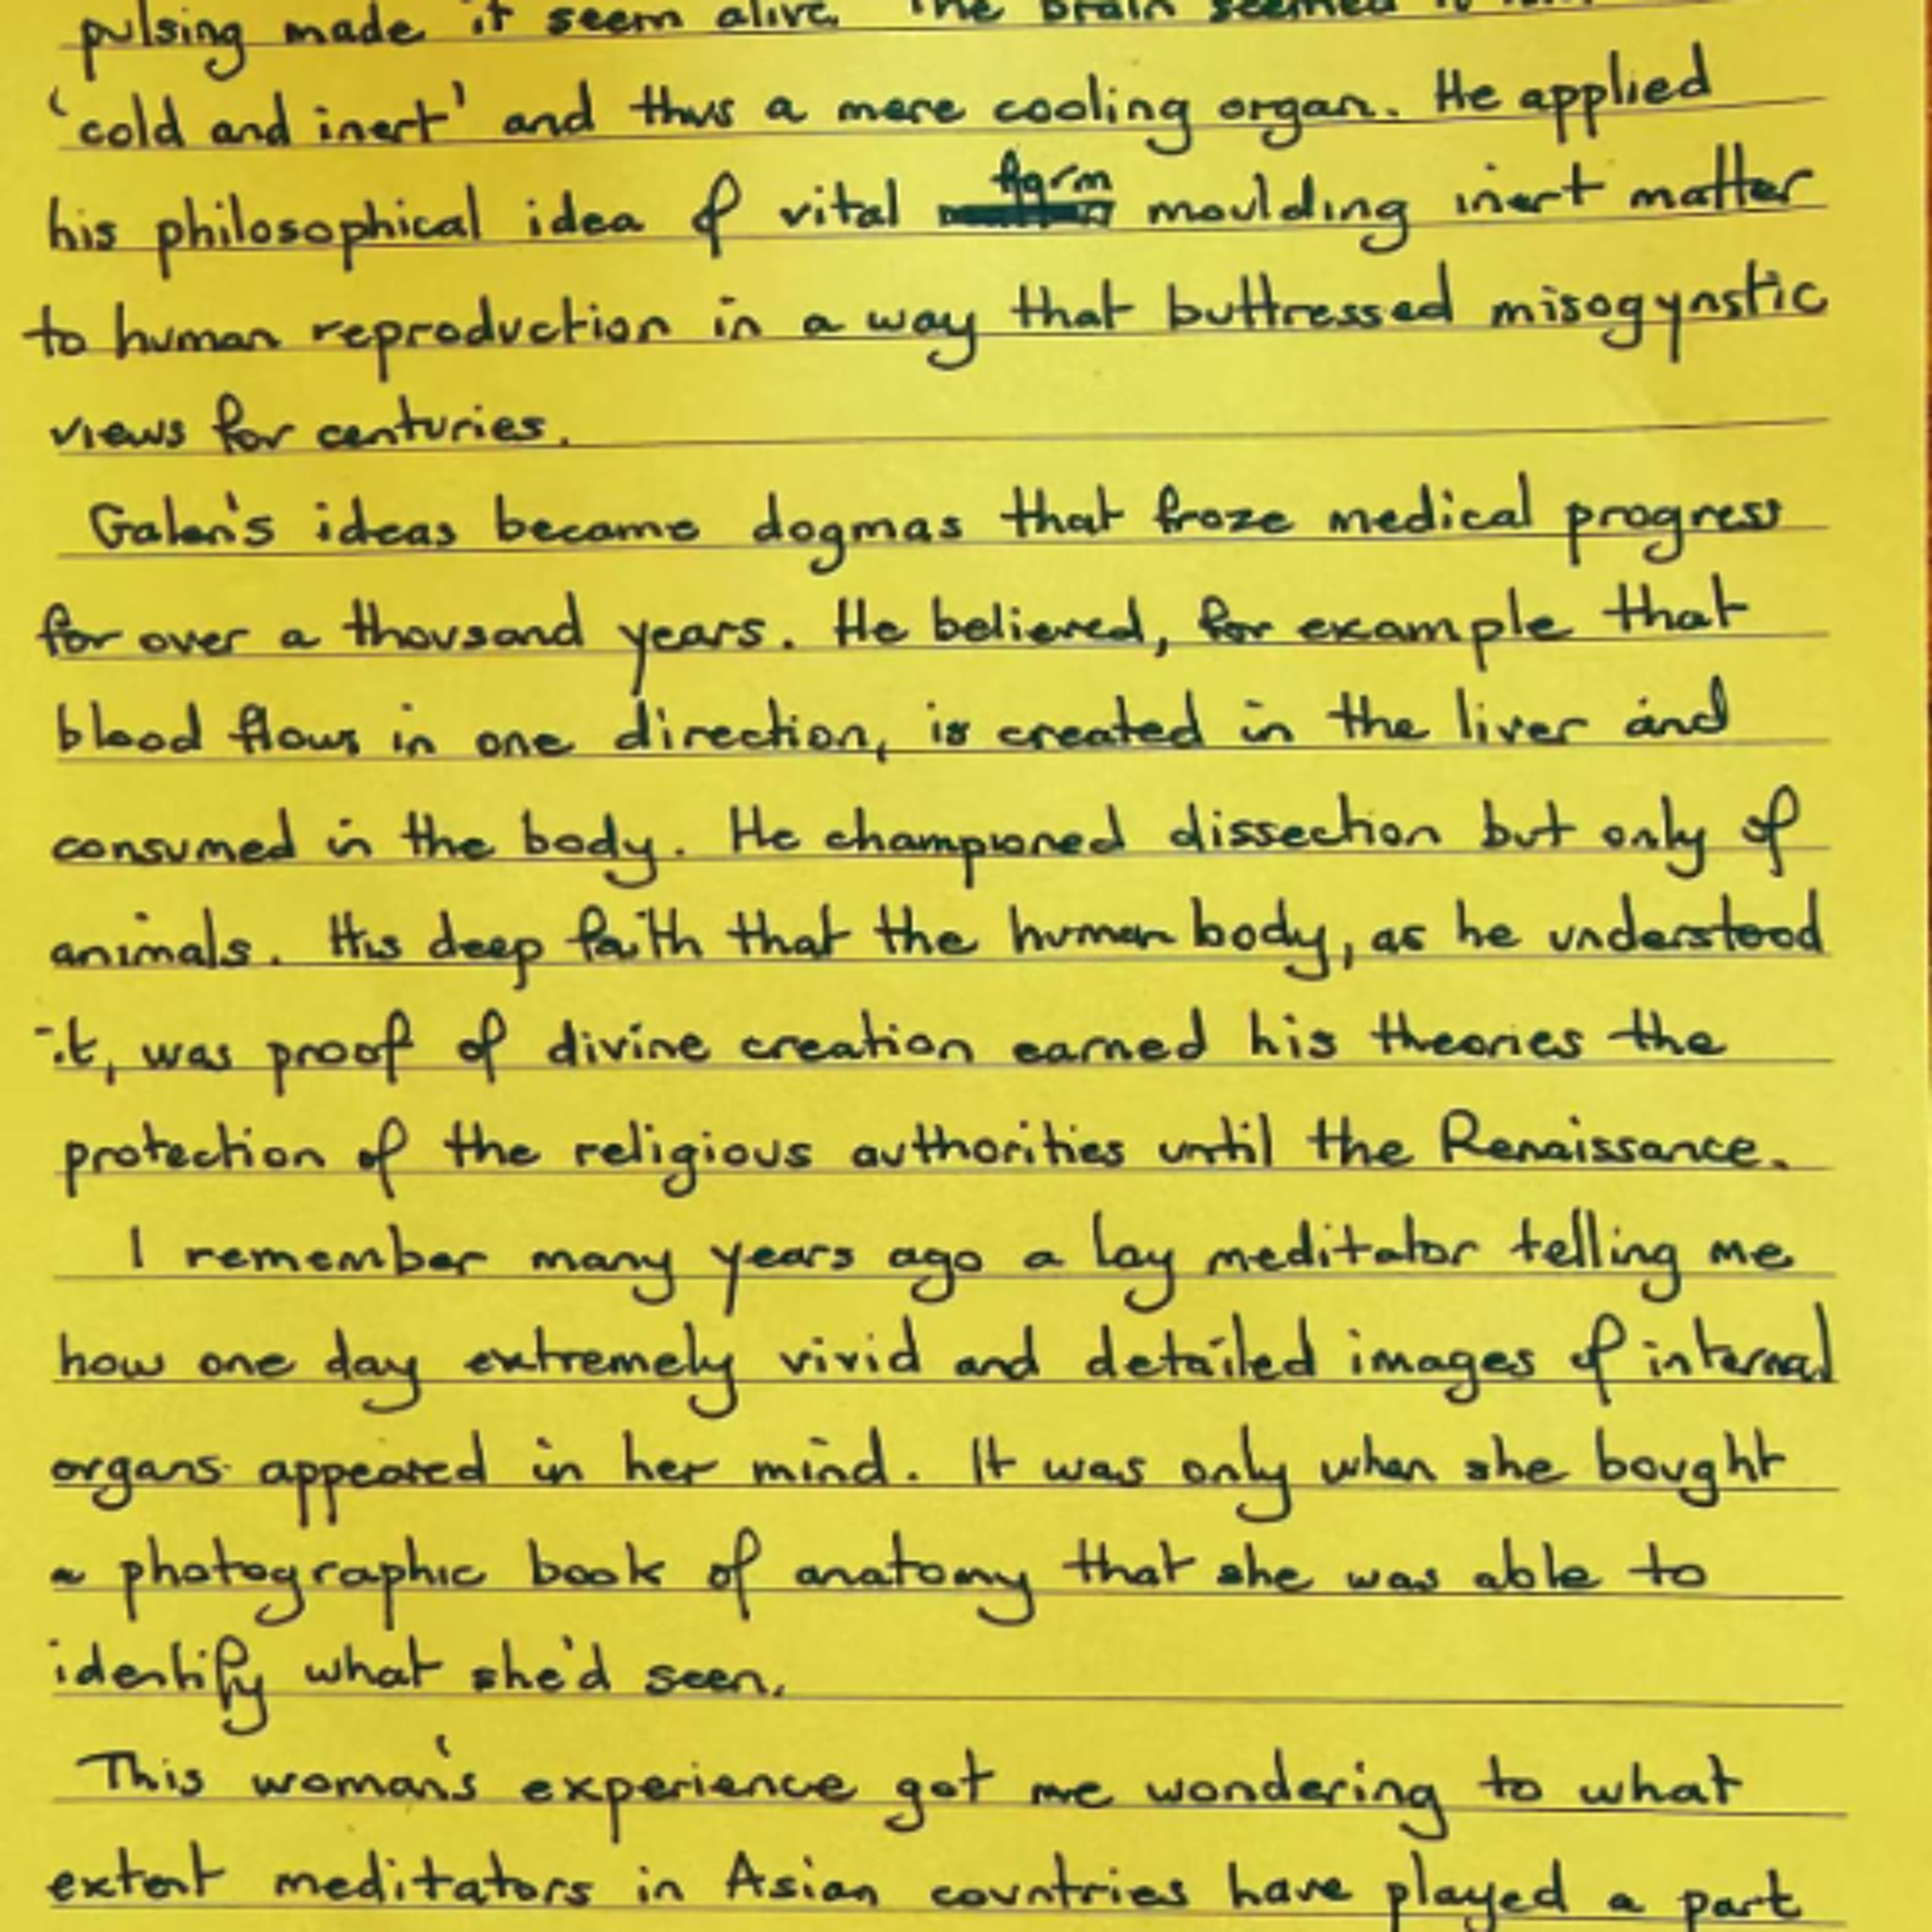 pulsing made it seem alive. The brain seemed to
'cold and inert' and thus a mere cooling organ. He applied
his philosophical idea of vital form moulding inert matter
to human reproduction in a way that buttressed misogynstic
views for centuries.
Galen's ideas became dogmas that froze medical progress
for over a thousand years. He believed, for example that
blood flows in one direction, is created in the liver and
consumed in the body. He championed dissection but only of
animals. His deep faith that the human body, as he understood
it, was proof of divine creation earned his theories the
protection of the religious authorities until the Renaissance.
I remember many years ago a lay meditator telling me
how one day extremely vivid and detailed images of internal
organs appeared in her mind. It was only when she bought
a photographic book of anatomy that she was able to
identify what she'd seen.
This woman's experience got me wondering to what
extent meditators in Asian countries have played a part